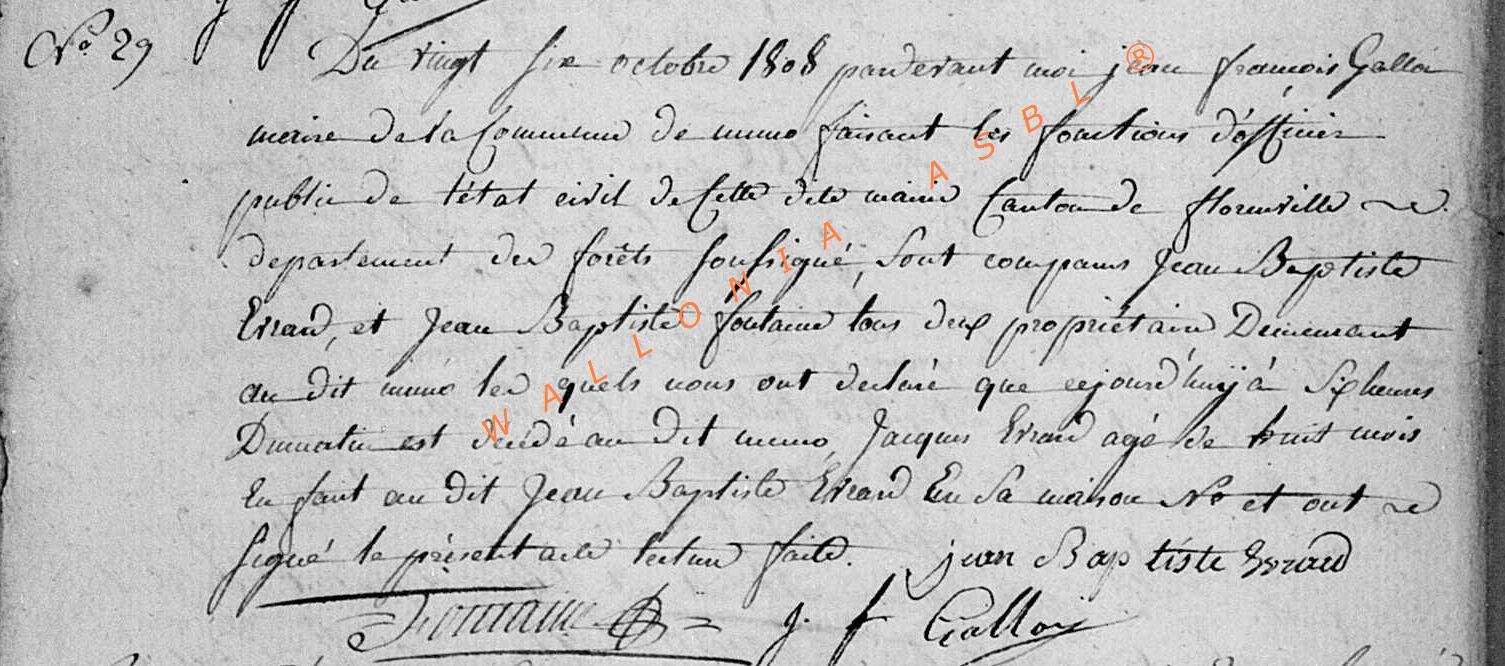 N.o 29
Du vingt six octobre 1808 pardevant moi jean françois Galloi
maire de la Commune de muno faisant les fonctions d'officier
public de l'état civil de Cette dite mairie Canton de florenville
departement des forêts soussigné, sont comparus Jean Baptiste
Errard, et Jean Baptiste fontaine tous deux propriétaire Demeurant
au dit muno les quels nous ont declaré que cejourd'huij à Six heures
Dumatin est décédé au dit muno, Jacques Errard agé de huit mois
En fant au dit Jean Baptiste Errard En Sa maison No et ont
signé le présent acte lecture faite. jean Baptiste Errard
Fontaine j. f Galloy
WALLONIA ASBL ®